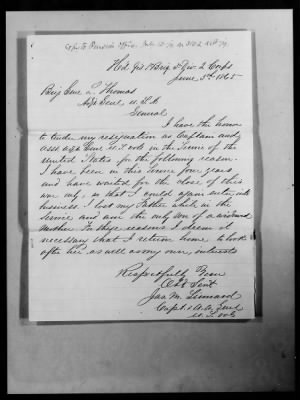 Copy to Pension Office
Hd Qrs 1st Brig 3d Div 2 Corps
June 3rd 1865
Brig Genl L. Thomas
Adjt Genl U.S.A
General
I have the honor
to tender my resignation as Captain and
Asst Adjt Genl U.S. vols in the Service of the
United States for the following reason.
I have been in this service four years
and have waited for the close of this
war only, so that I could again enter into
business. I lost my Father while in the
service and am the only Son of a widowed
Mother. For these reasons I deem it
necessary that I return home to look
after her as well as my own interests
Respectfully Yours
Obt Servt
Jas. M.
Capt & A.A. Genl
U.S. vols